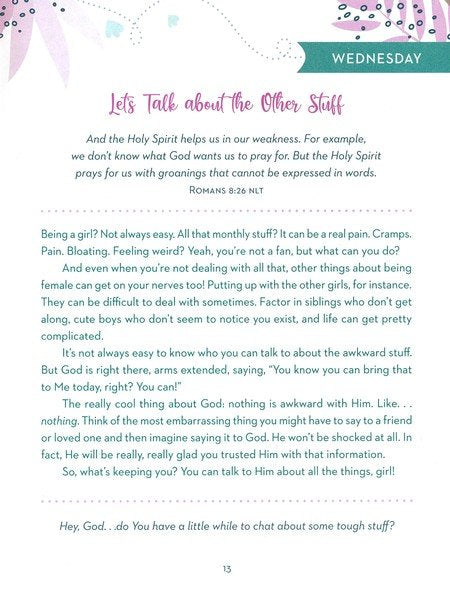 WEDNESDAY
Let's Talk about the Other Stuff
And the Holy Spirit helps us in our weakness. For example,
we don't know what God wants us to pray for. But the Holy Spirit
prays for us with groanings that cannot be expressed in words.
ROMANS 8:26 NLT
Being a girl? Not always easy. All that monthly stuff? It can be a real pain. Cramps.
Pain. Bloating. Feeling weird? Yeah, you're not a fan, but what can you do?
And even when you're not dealing with all that, other things about being
female can get on your nerves too! Putting up with the other girls, for instance.
They can be difficult to deal with sometimes. Factor in siblings who don't get
along, cute boys who don't seem to notice you exist, and life can get pretty
complicated.
It's not always easy to know who you can talk to about the awkward stuff.
But God is right there, arms extended, saying, "You know you can bring that
to Me today, right? You can!"
The really cool thing about God: nothing is awkward with Him. Like. . .
nothing. Think of the most embarrassing thing you might have to say to a friend
or loved one and then imagine saying it to God. He won't be shocked at all. In
fact, He will be really, really glad you trusted Him with that information.
So, what's keeping you? You can talk to Him about all the things, girl!
Hey, God. . .do You have a little while to chat about some tough stuff?
13